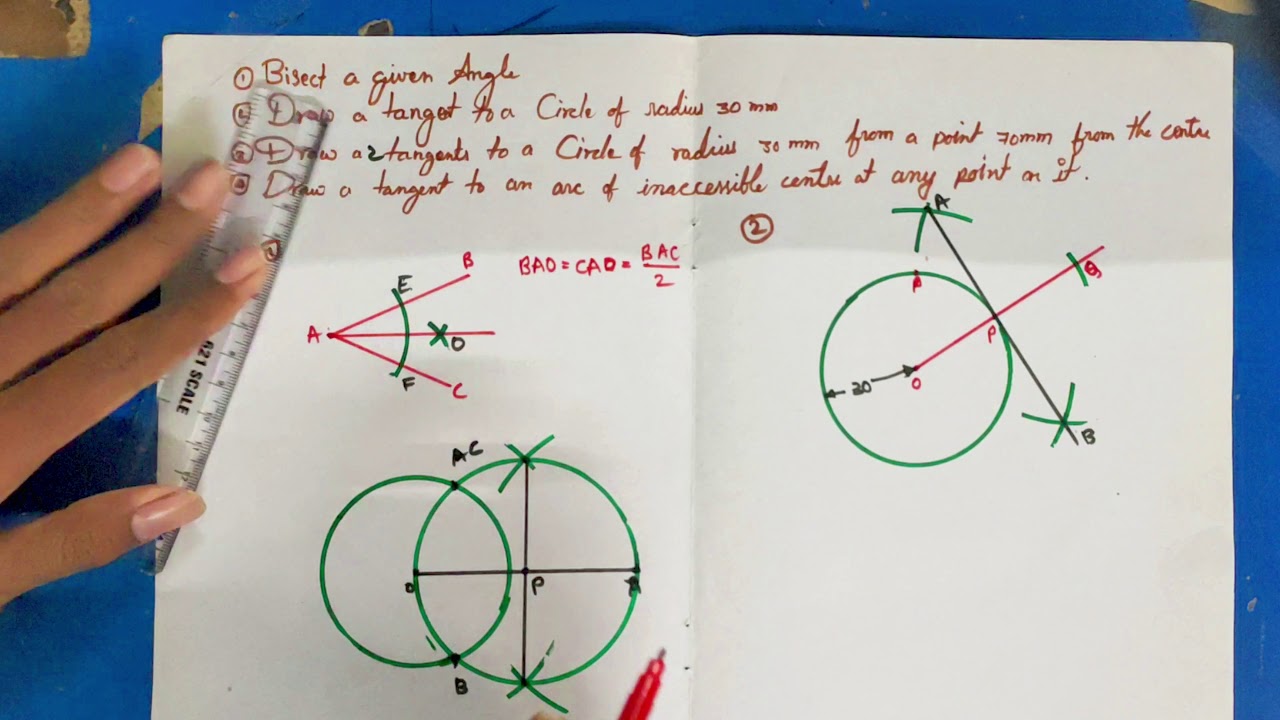 ① Bisect a given Angle
② Draw a tangot to a Circle of radius 30 mm
③ Draw a 2 tangents to a Circle of radius 30 mm from a point 70mm from the centre
④ Draw a tangent to an arc of inaccessible centre at any point on it.
②
A
B
E
BAO = CAO = BAC/2
A
O
F
C
P
Q
P
O
30
B
621 SCALE
A C
O
P
B